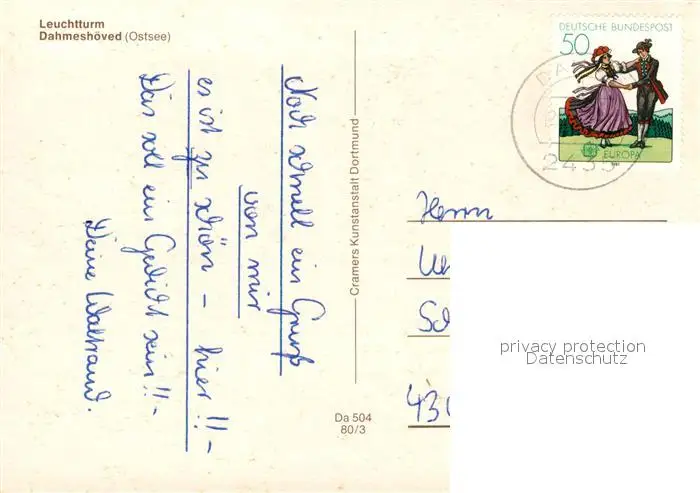 Leuchtturm
Dahmeshöved (Ostsee)
Noch schnell ein Gruß
von mir
es ist zu schön – hier!!–
Das soll ein Gedicht sein!!–
Deine Waltraud.
Cramers Kunstanstalt Dortmund
Da 504
80/3
DEUTSCHE BUNDESPOST
50
EUROPA
DA
2435
Herrn
privacy protection
Datenschutz